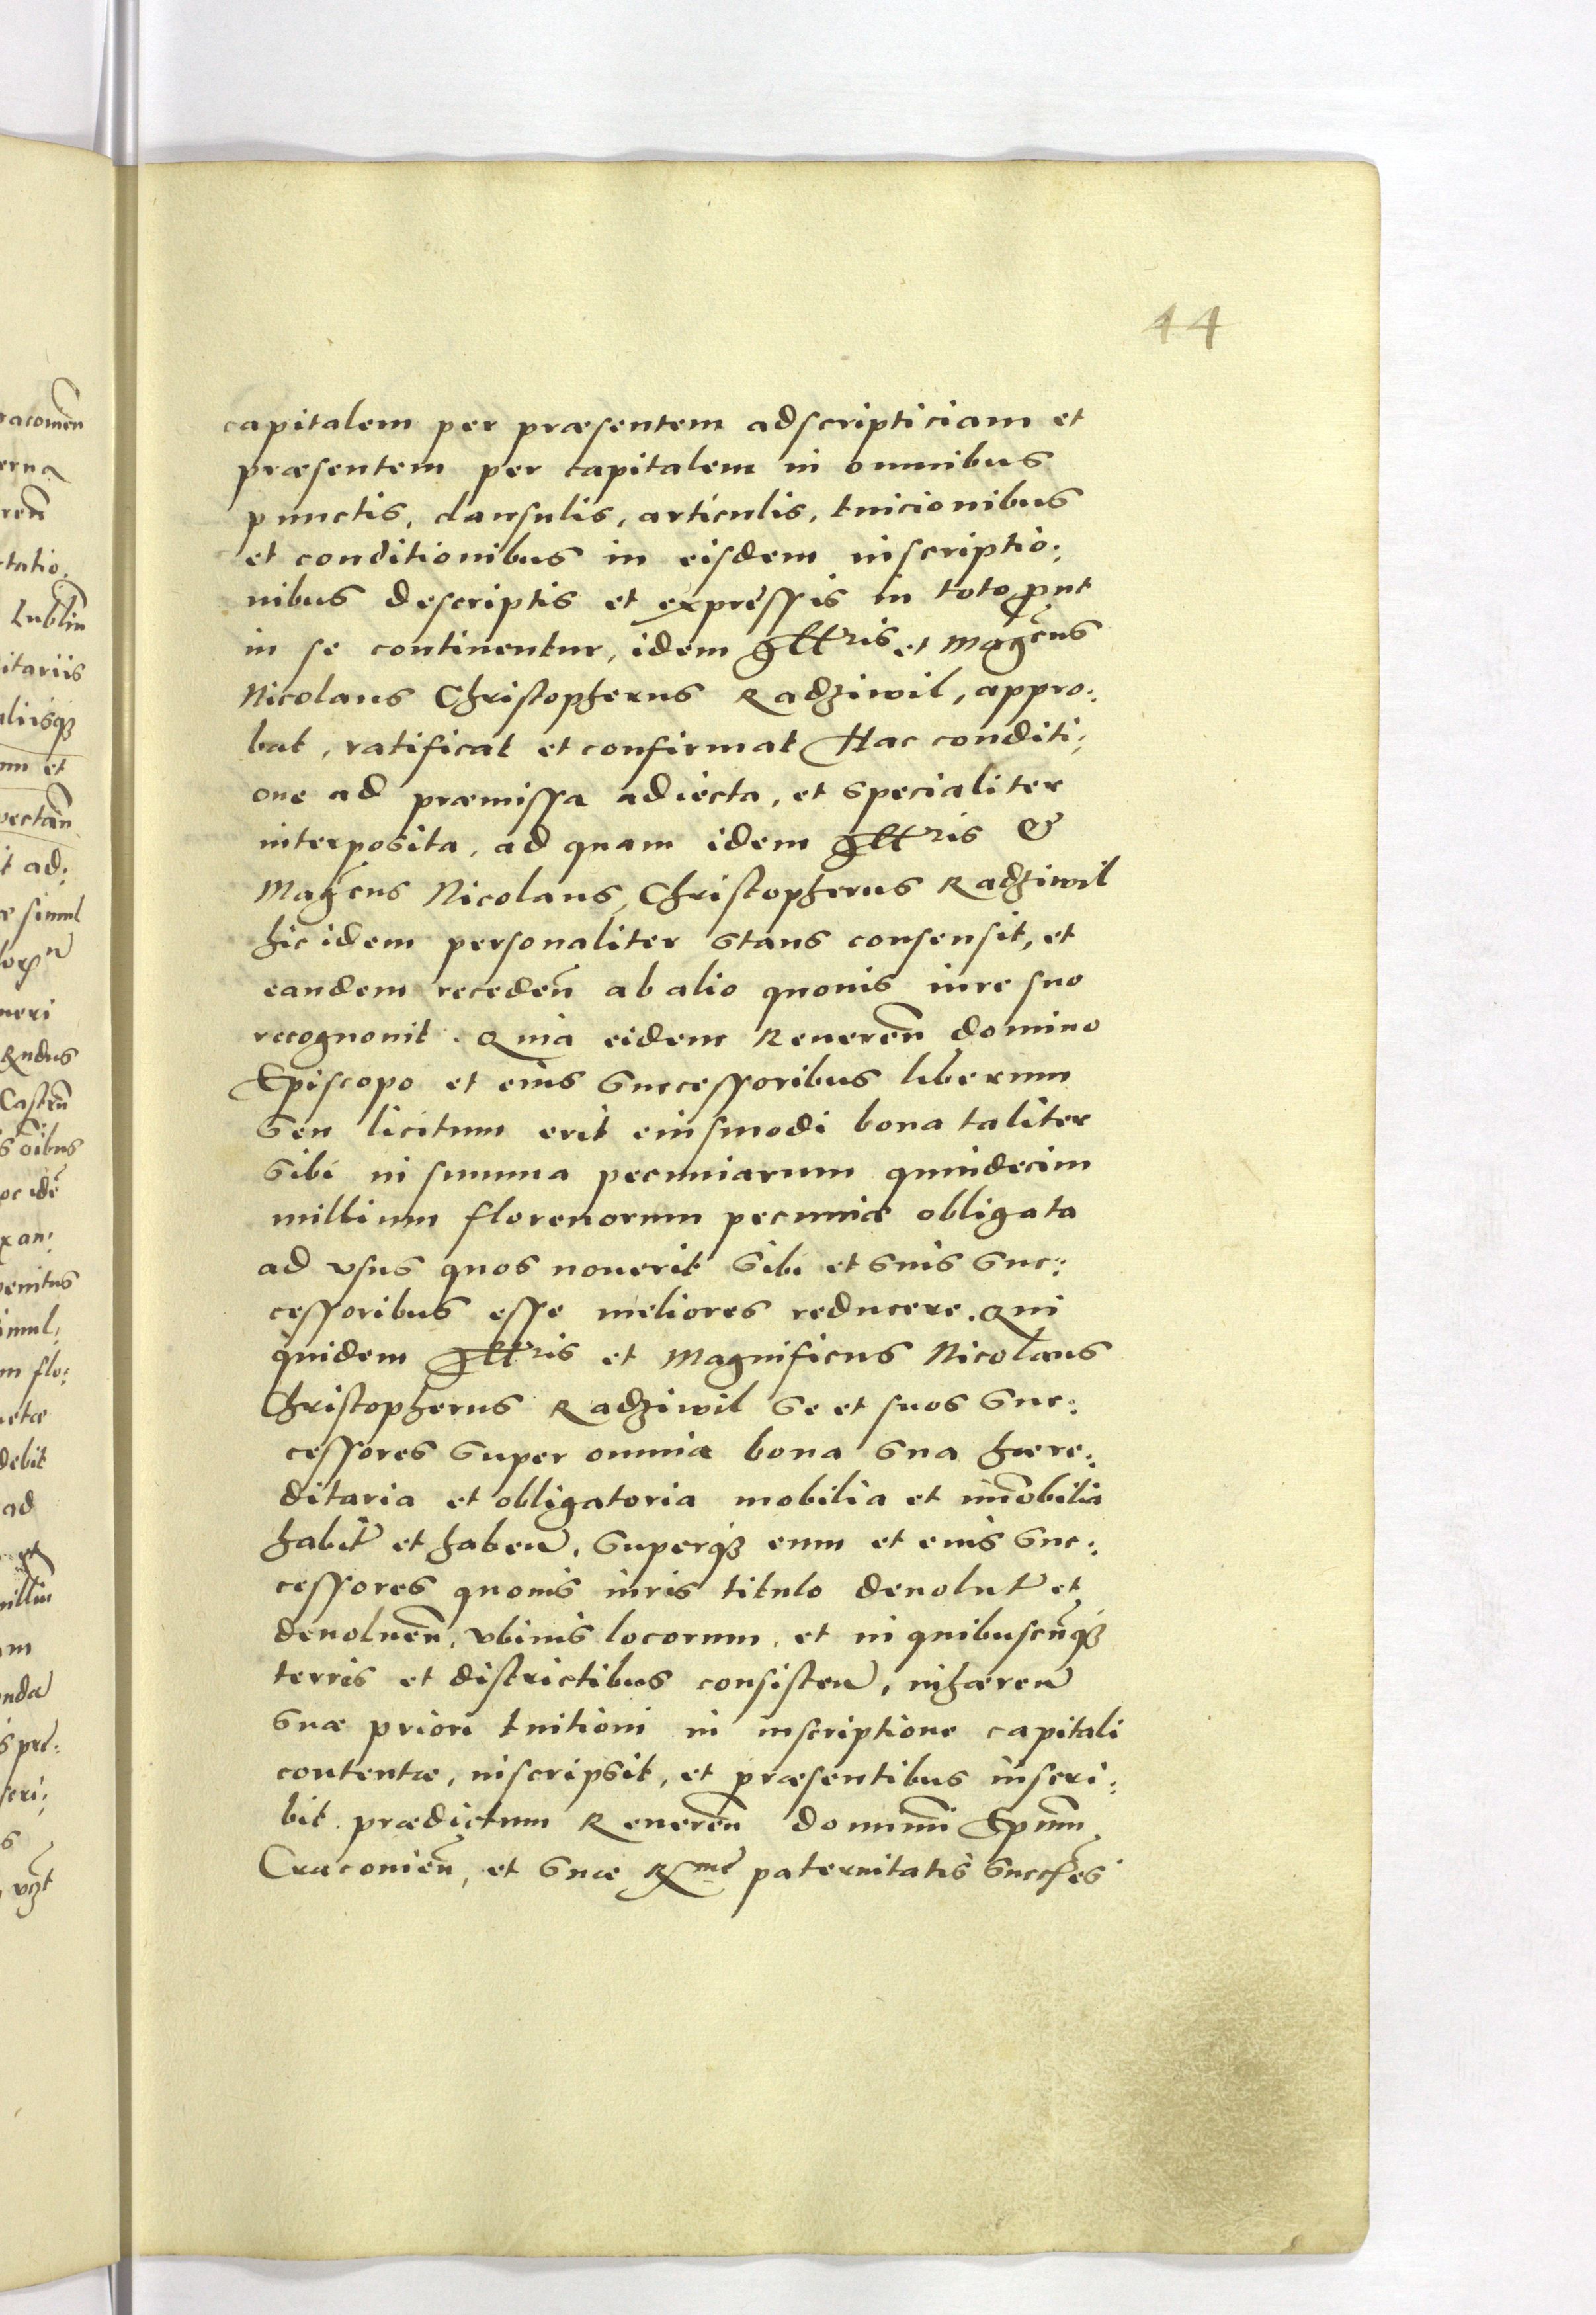 44
capitalem per præsentem adscripticiam et
præsentem per capitalem in omnibus
punctis, clausulis, articulis, tuicionibus
et conditionibus in eisdem inscriptio:
nibus descriptis et expressis in toto ꝓut
in se continentur, idem Illris et Magcus
Nicolaus Christopherus Radziwil, appro:
bat, ratificat et confirmat Hac conditi:
one ad præmissa adiecta, et specialiter
interposita, ad quam idem Illris &
Magcus Nicolaus Christopherus Radziwil
hic idem personaliter stans consensit, et
eandem receden̄ ab alio quouis iure suo
recognouit. Quia eidem Reueren̄ domino
Episcopo et eius successoribus liberum
seu licitum erit eiusmodi bona taliter
sibi in summa pecuniarum quindecim
millium florenorum pecuniæ obligata
ad vsus quos nouerit sibi et suis suc:
cessoribus esse meliores reducere. Qui
quidem Illris et Magnificus Nicolaus
Christopherus Radziwil se et suos suc:
cessores super omnia bona sua hære:
ditaria et obligatoria mobilia et im̄obilia
habit̄ et haben̄, superqȝ eum et eius suc:
cessores quouis iuris titulo deuolut̄ et
deuoluen̄, vbiuis locorum, et in quibuscun̄qȝ
terris et districtibus consisten̄, inhæren̄
suæ priori tuitioni in inscriptione capitali
contentæ, inscripsit, et præsentibus inscri:
bit prædictum Reueren̄ dominum̄ Ep̄um
Cracouien̄, et suæ Rme paternitatis succes̄es
acomen̄
erna
ren̄
tatio:
Lublin̄
itariis
aliisqȝ
um et
vectan̄
t ad:
e simul
neri
Rndus
Castrn̄
s oībus
oc idē
xan:
penitus
imul:
m flo:
etæ
debit
ad
et
millium̄
am
nda
s præ:
scri:
s
vȝt